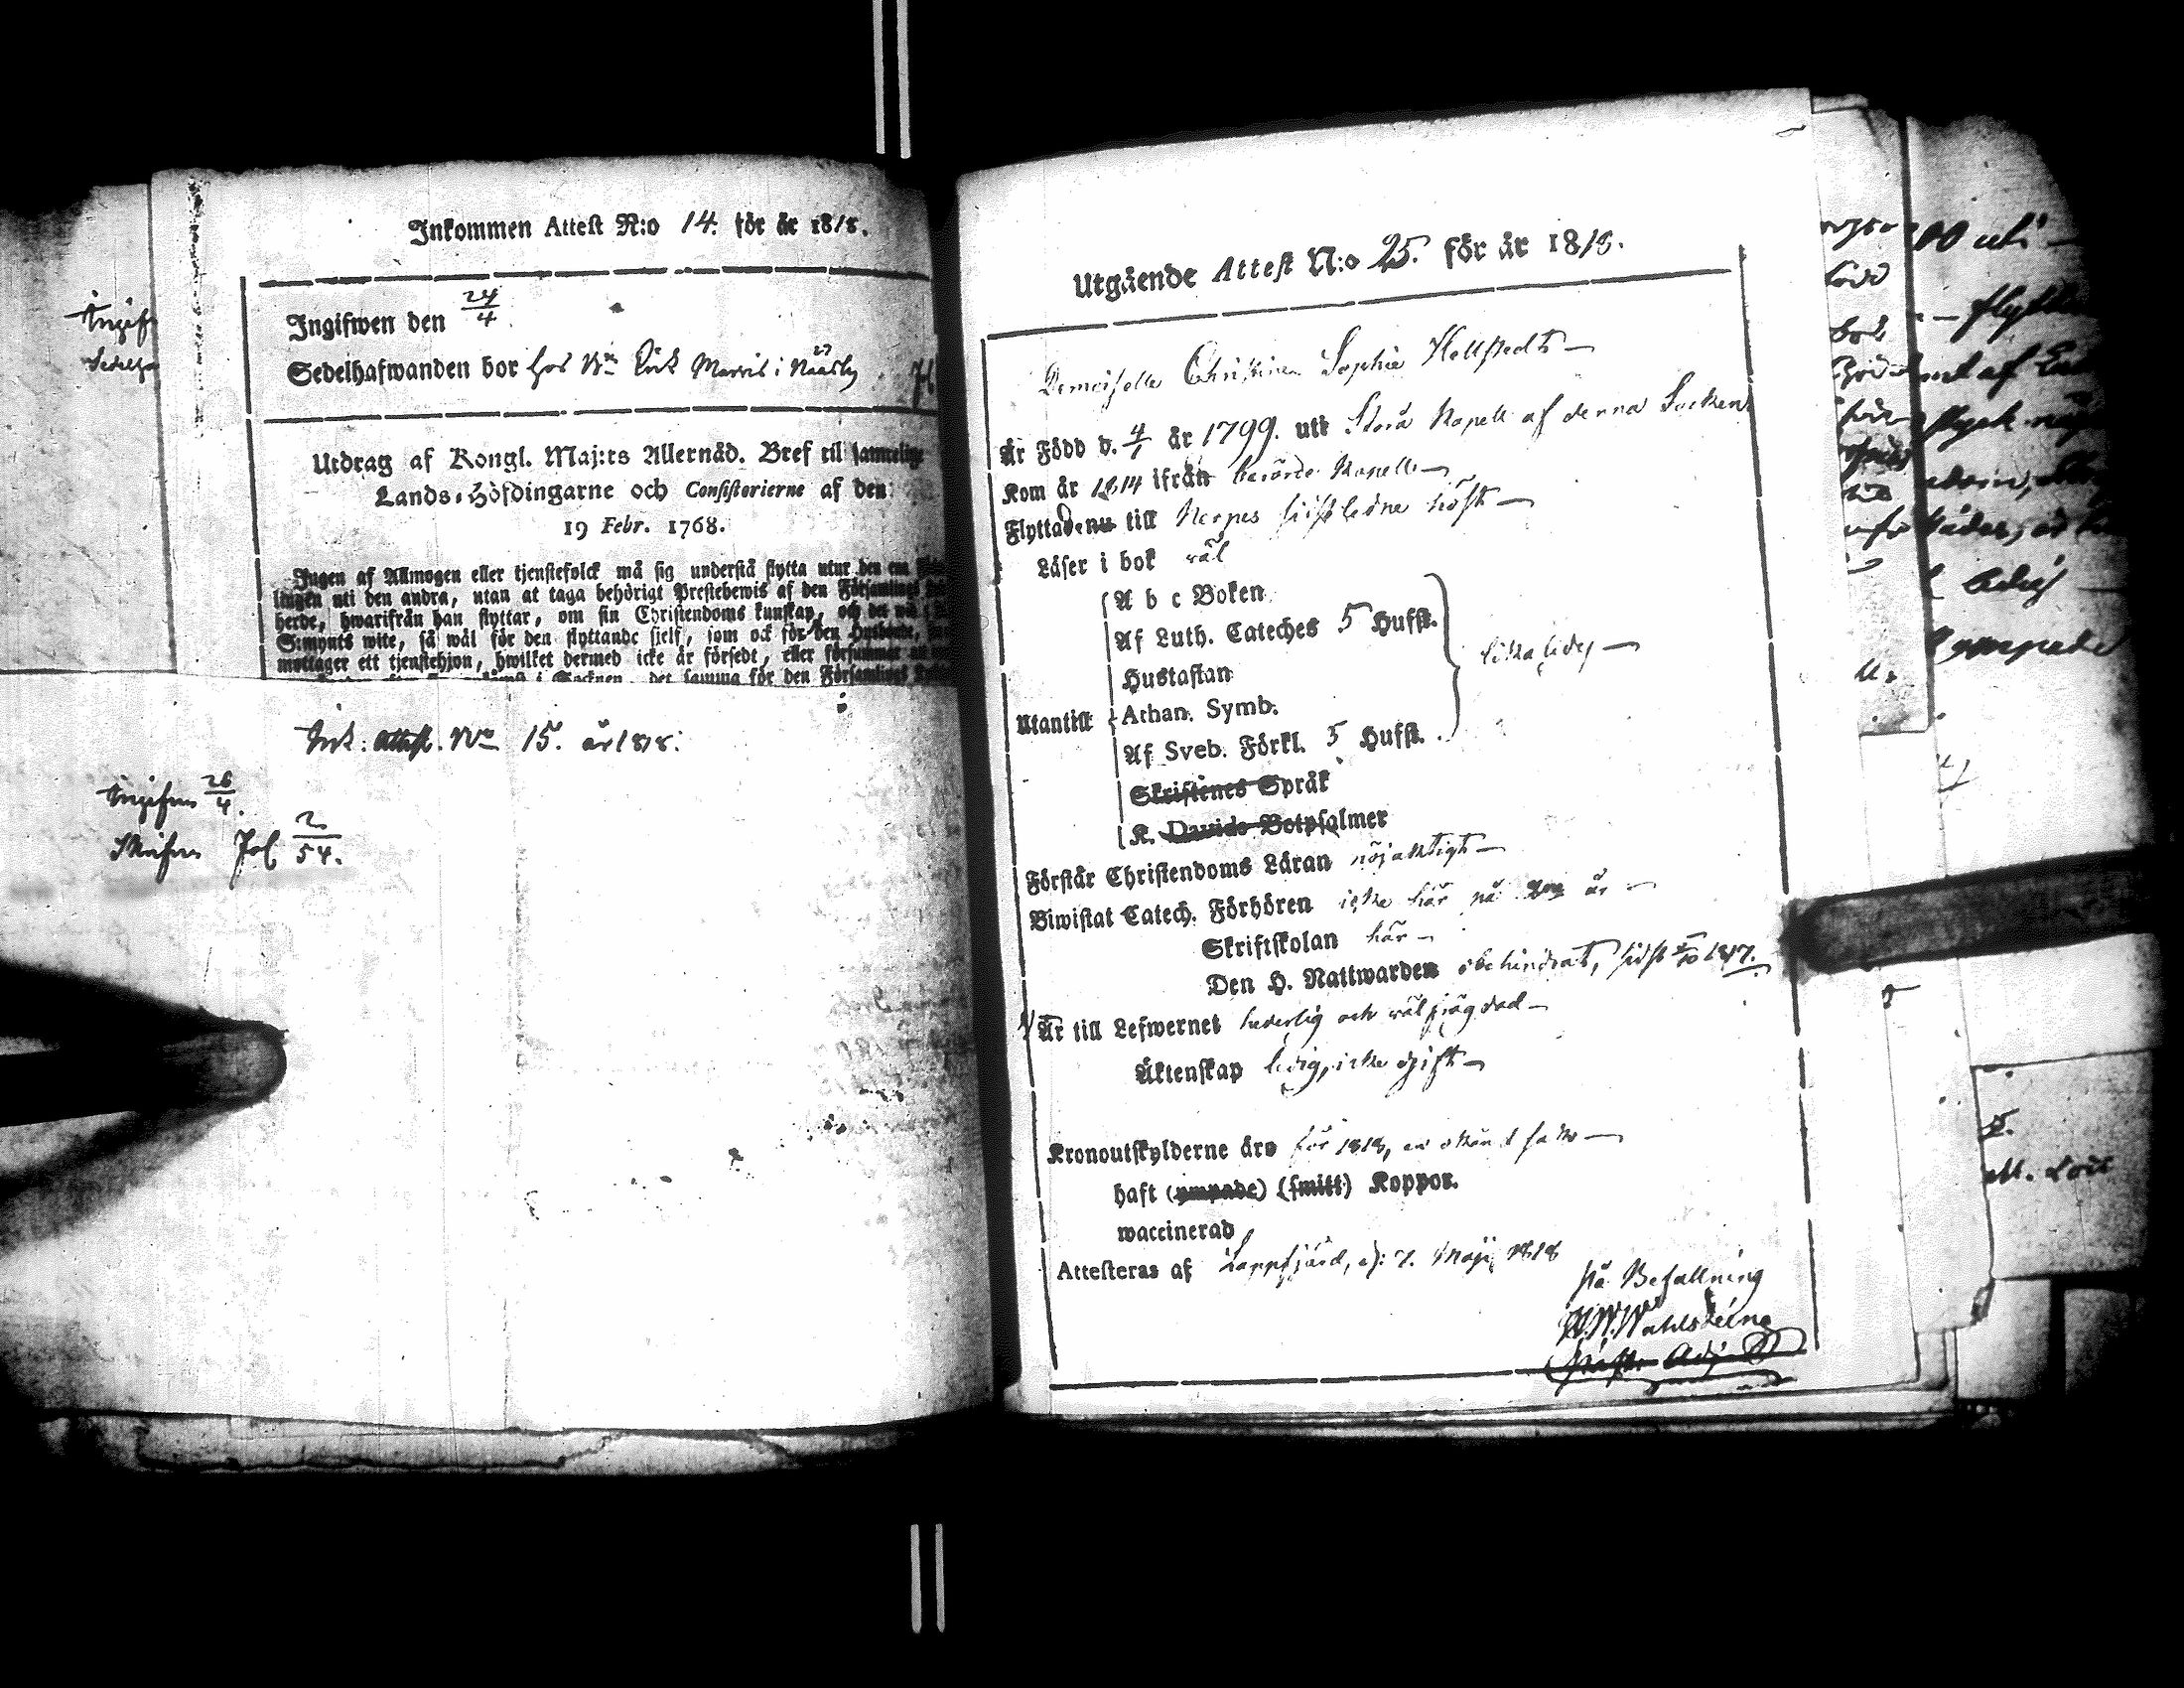 Inkommen Attest N:o 14. för år 1818.
Ingifwen den 24/4
Sedelhafwanden bor hos No Erik i
Utdrag af Kongl. Maj:ts Allernåd. Bref til samtelige
Lands-Höfdingarne och Consistorierne af den
19 Febr. 1768.
Ingen af Allmogen eller tjenstefolck må sig understå flytta utur den ena
lingen uti den andra, utan at taga behörigt Prestebewis af den Församlings
herde, hwarifrån han flyttar, om sin Christendoms kunskap, och det wid
S:mynts wite, så wäl för den flyttande sielf, som ock för den Husbonde,
mottager ett tjenstehjon, hwilket dermed icke är försedt, eller försummar
i Socknen, det samma för den Församlings
Ink: Attest. No 15. år 1818.
Ingifven 26/4.
Skrifven Fol 2/54.
Utgående Attest N:o 25. för år 1818.
Demoiselle Christina Sophia Hellstedt
Är Född d. 4/1 år 1799. utt Storå Kapell af denna Socken
Kom år 1814 ifrån berörde Kapell
Flyttade nu till Nerpes sistledne höst
Läser i bok väl
Utantill
A b c Boken
Af Luth. Cateches 5 Hufst.
Hustaflan
Athan. Symb.
Af Sveb. Förkl. 5 Hufst.
likaledes
Skriftenes Språk
K. Davids Botpsalmer
Förstår Christendoms Läran nöjaktigt
Biwistat Catech. Förhören icke här på år
Skriftskolan här
Den H. Nattwarden obehindrat, sidst 1817.
Är till Lefwernet hederlig och välfrägdad
Äktenskap ledig, icke gift
Kronoutskylderne äro för 1818,
haft (ympade) (smitt) Koppor.
waccinerad
Attesteras af Lappfjärd, d: 7. Maji 1818
På Befallning